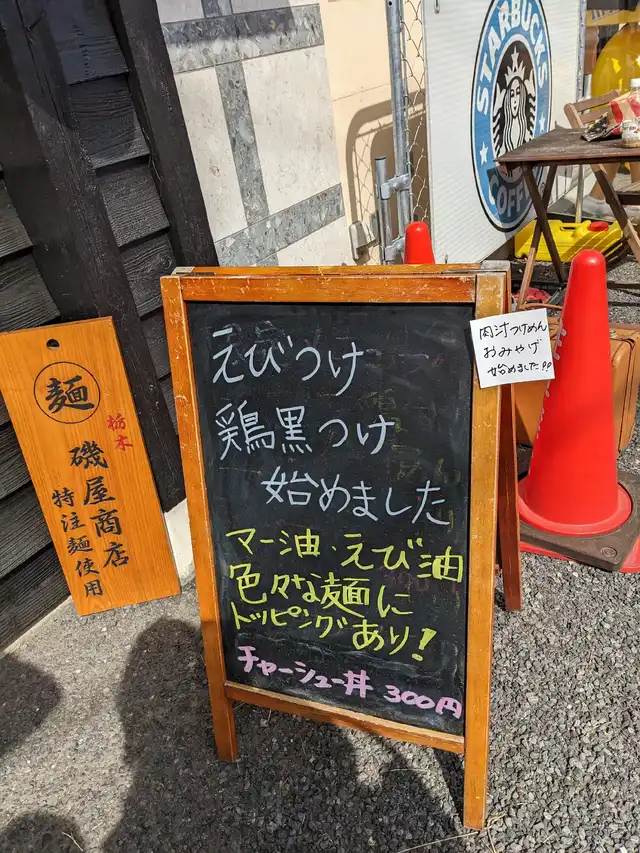 えびつけ
鶏黒つけ
始めました
マー油・えび油
色々な麺に
トッピングあり!
チャーシュー丼 300円
肉汁つけめん
おみやげ
始めました!!
麺
栃木
磯屋商店
特注麺使用
STARBUCKS
COFFEE